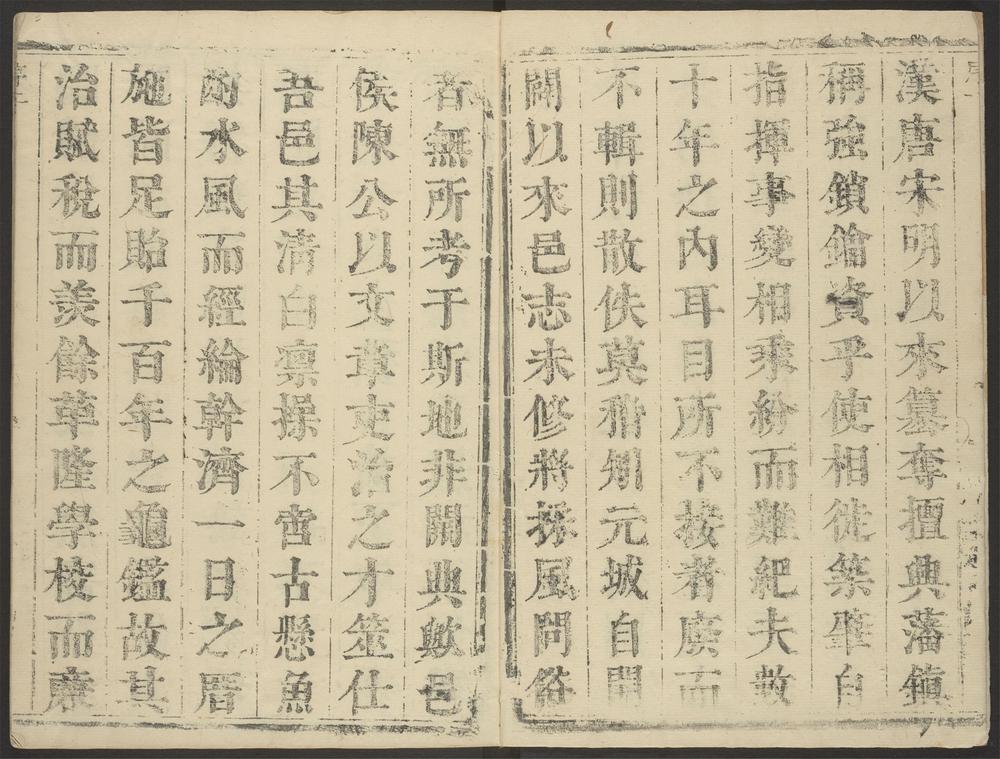 漢唐宋明以來篡奪擅興藩鎮
稱強鎖鑰資乎使相徙築雖自
指揮事變相乘紛而難紀夫數
十年之內耳目所不接者廣而
不輯則散佚莫稽矧元城自開
闢以來邑志未修將採風問俗
者無所考于斯地非闕典歟邑
侯陳公以文章吏治之才筮仕
吾邑其清白凛操不啻古懸魚
酌水風而經綸幹濟一日之厝
施皆足貽千百年之龜鑑故其
治賦稅而羡餘革隆學校而康